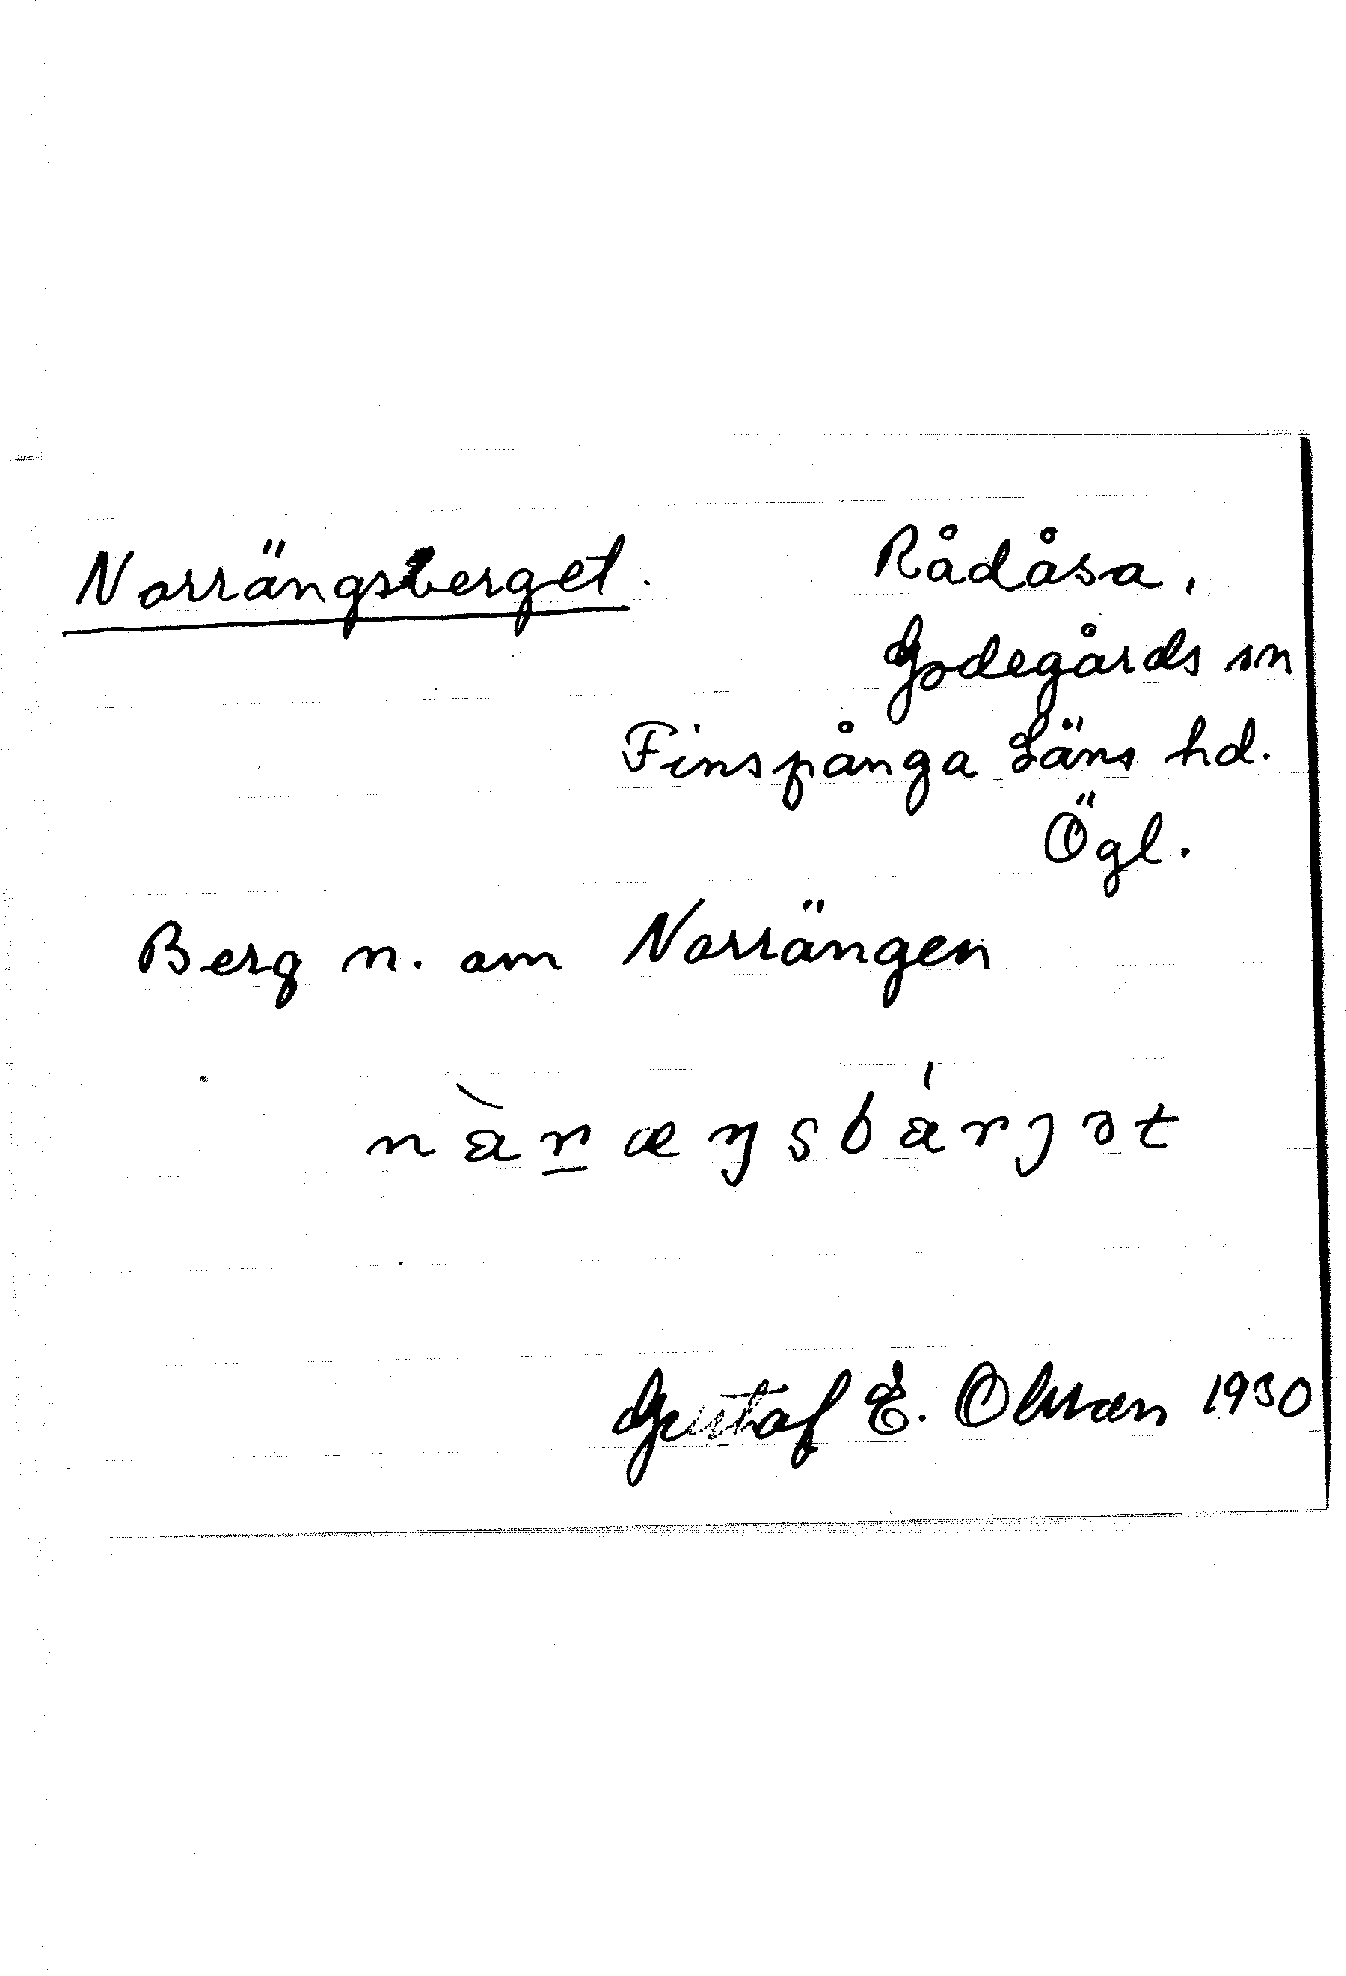 Norrängsberget.
Rådåsa,
Godegårds sn
Finspånga Läns hd.
Ögl.
Berg n. om Norrängen
nàr̲æŋsbárjət
Gustaf E. Olsson 1930